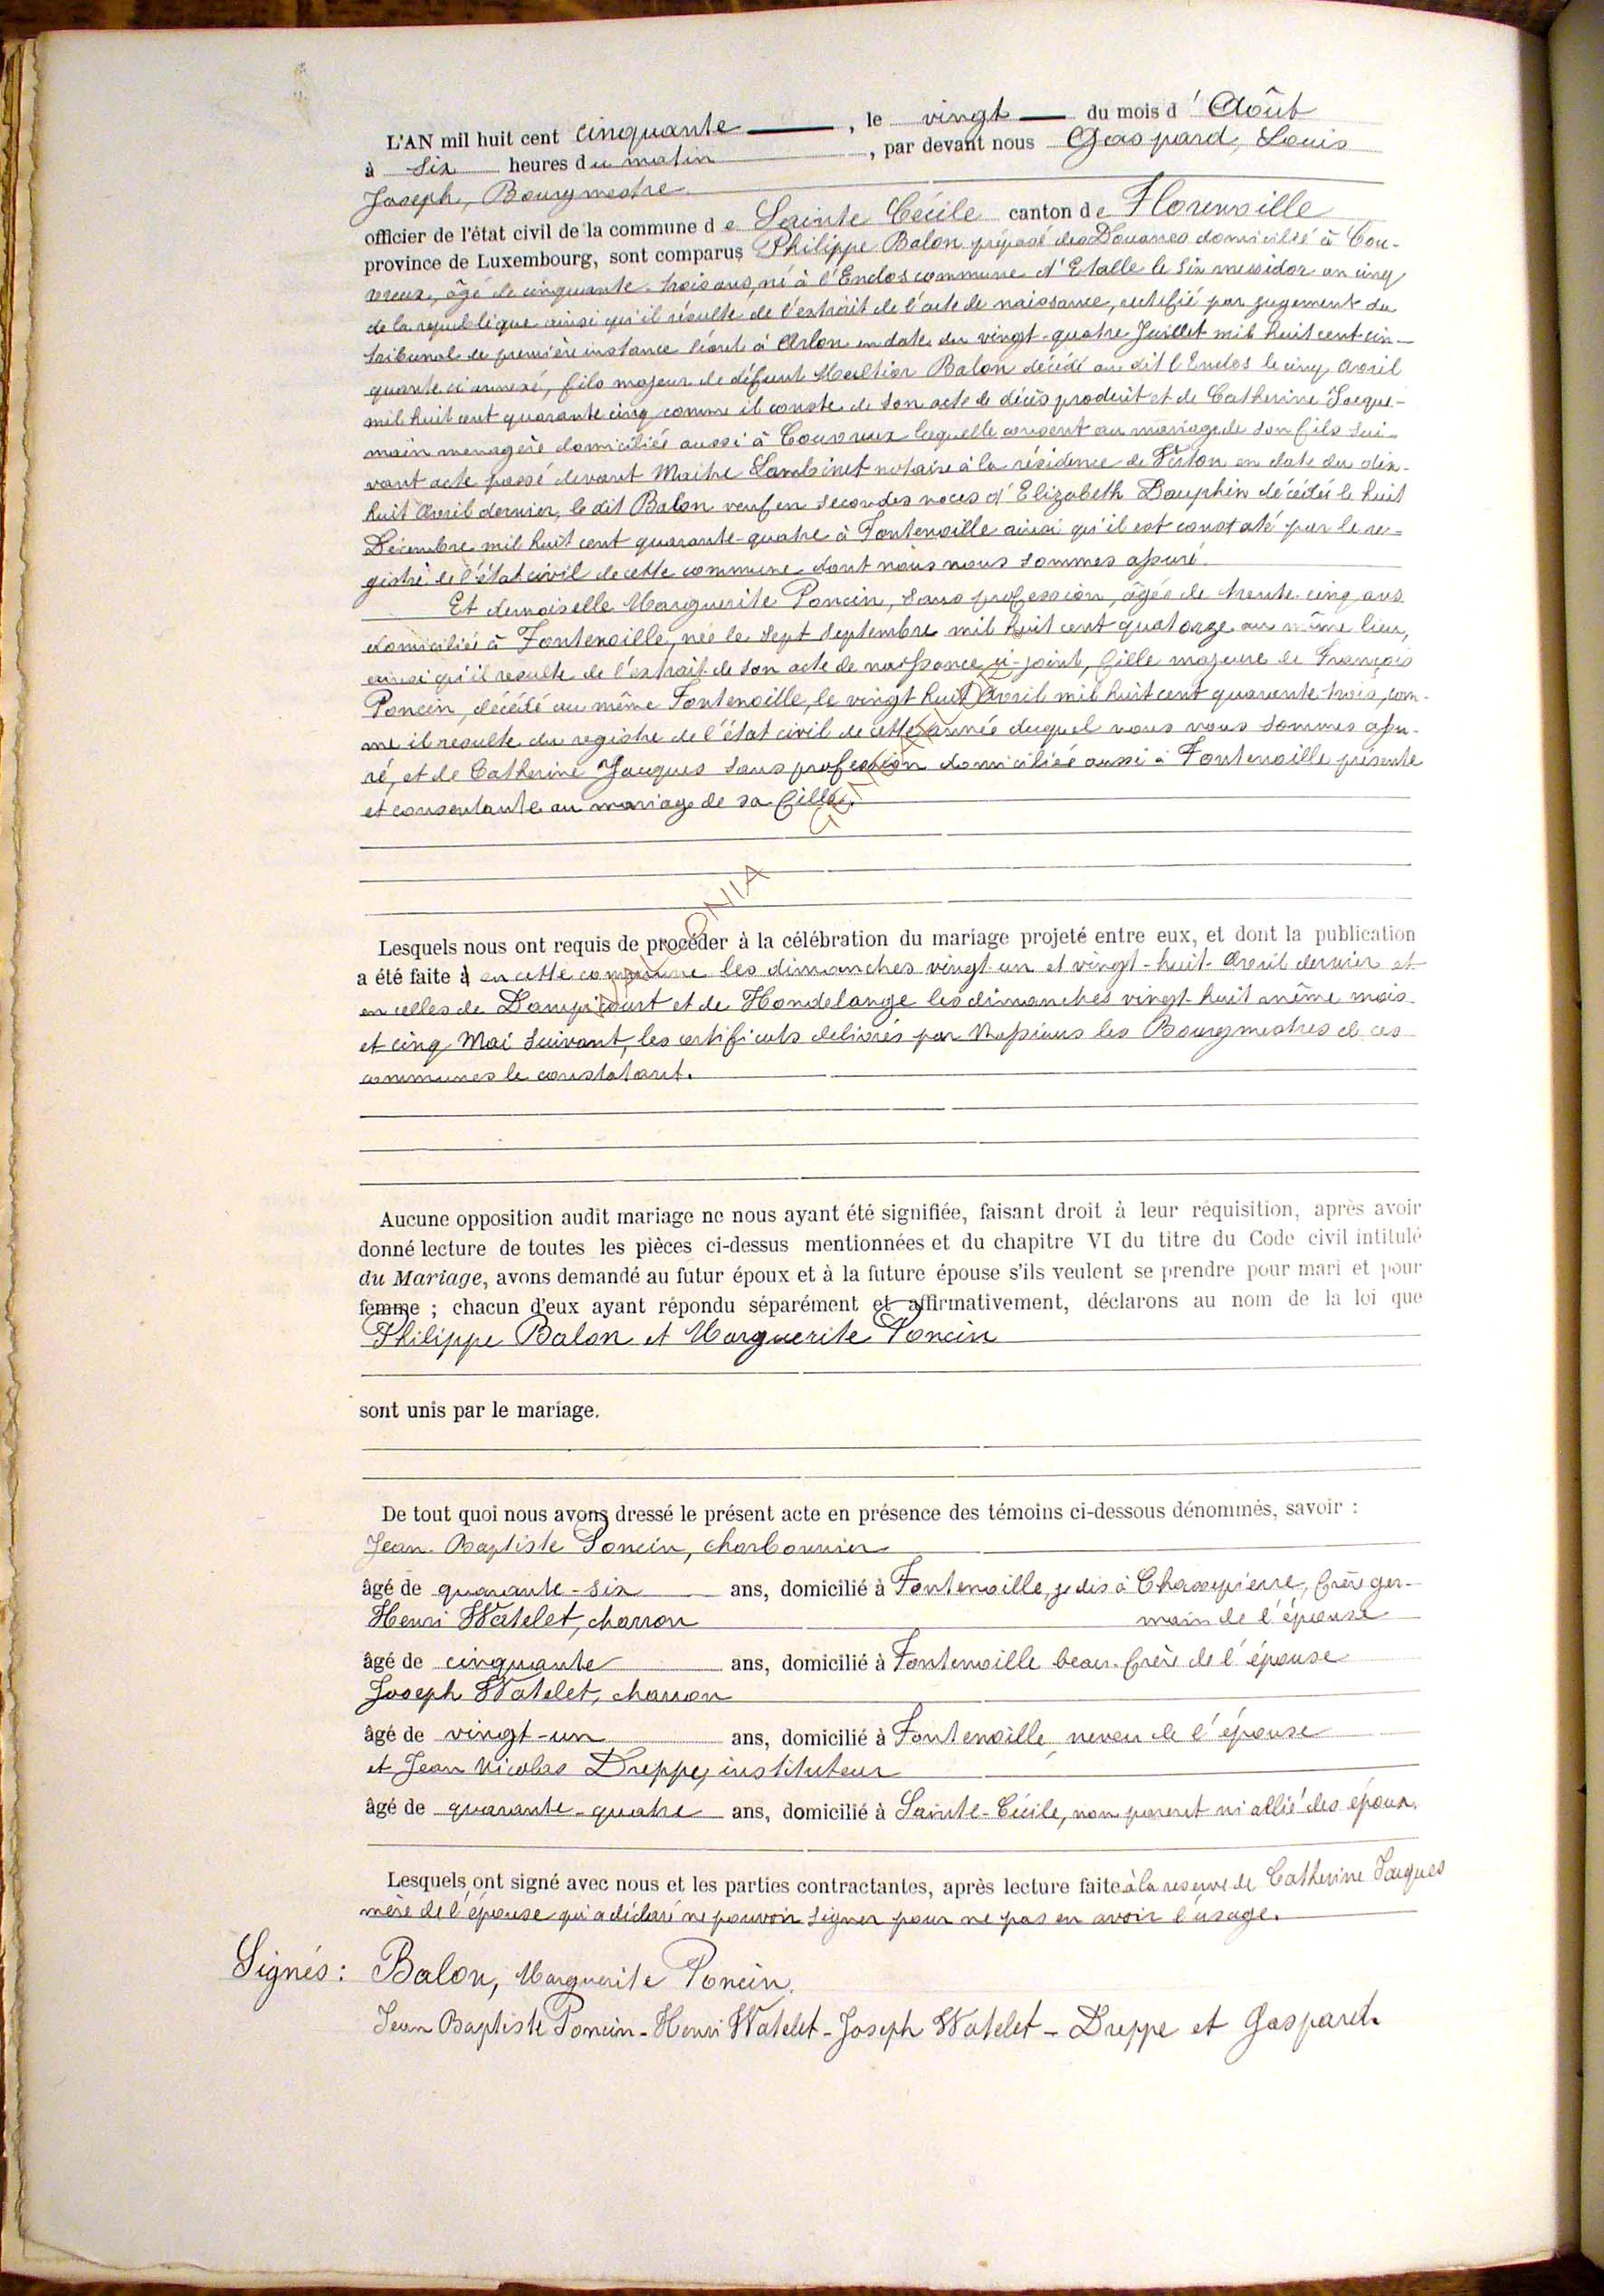 L'AN mil huit cent cinquante, le vingt du mois d'Août
à six heures du matin, par devant nous Gaspard, Louis
Joseph, Bourgmestre
officier de l'état civil de la commune de Sainte Cécile canton de Florenville
province de Luxembourg, sont comparus Philippe Balon préposé des Douanes domicilié à Cou-
vreux, âgé de cinquante-trois ans, né à l'Enclos commune d'Etalle le six messidor an cinq
de la republique ainsi qu'il résulte de l'extrait de l'acte de naissance, rectifié par jugement du
tribunal de première instance séant à Arlon en date du vingt-quatre Juillet mil huit cent cin-
quante ci annexé, fils majeur de défunt Balon décédé au dit l'Enclos le cinq Avril
mil huit cent quarante cinq comme il conste de son acte de décès produit et de Catherine Jacque-
main menagère domiciliée aussi à Couvreux laquelle consent au mariage de son fils sui-
vant acte passé devant Maitre Lambinet notaire à la résidence de Virton en date du dix-
huit Avril dernier, le dit Balon veuf en secondes noces d'Elizabeth Dauphin décédée le huit
Décembre mil huit cent quarante-quatre à Fontenoille ainsi qu'il est constaté par le re-
gistre de l'état civil de cette commune dont nous nous sommes assuré.
Et demoiselle Marguerite Poncin, sans profession, âgée de trente-cinq ans
domiciliée à Fontenoille, née le sept Septembre mil huit cent quatorze au même lieu,
ainsi qu'il resulte de l'extrait de son acte de naissance ci-joint, fille majeure de François
Poncin, décédé au même Fontenoille, le vingt huit Avril mil huit cent quarante trois, com-
me il resulte du registre de l'état civil de cette année duquel nous nous sommes assu-
ré, et de Catherine Jacques sans profession domiciliée aussi à Fontenoille présente
et consentante au mariage de sa fille.
Lesquels nous ont requis de procéder à la célébration du mariage projeté entre eux, et dont la publication
a été faite à en cette commune les dimanches vingt-un et vingt-huit Avril dernier et
en celles de Dampicourt et de Hondelange les dimanches vingt-huit même mois
et cinq Mai suivant, les certificats delivrés par Messieurs les Bourgmestres de ces
communes le constatant.
Aucune opposition audit mariage ne nous ayant été signifiée, faisant droit à leur réquisition, après avoir
donné lecture de toutes les pièces ci-dessus mentionnées et du chapitre VI du titre du Code civil intitulé
du Mariage, avons demandé au futur époux et à la future épouse s'ils veulent se prendre pour mari et pour
femme ; chacun d'eux ayant répondu séparément et affirmativement, déclarons au nom de la loi que
Philippe Balon et Marguerite Poncin
sont unis par le mariage.
De tout quoi nous avons dressé le présent acte en présence des témoins ci-dessous dénommés, savoir :
Jean-Baptiste Poncin, charbonnier
âgé de quarante-six ans, domicilié à Fontenoille, je dis à Chassepierre, frère ger-
Henri Watelet, charron main de l'épouse
âgé de cinquante ans, domicilié à Fontenoille beau-frère de l'épouse
Joseph Watelet, charron
âgé de vingt-un ans, domicilié à Fontenoille, neveu de l'épouse
et Jean Nicolas Dreppe, instituteur
âgé de quarante-quatre ans, domicilié à Sainte-Cécile, non parent ni allié des époux.
Lesquels ont signé avec nous et les parties contractantes, après lecture faite à la reserve de Catherine Jacques
mère de l'épouse qui a déclaré ne pouvoir signer pour ne pas en avoir l'usage.
Signés : Balon, Marguerite Poncin.
Jean Baptiste Poncin - Henri Watelet - Joseph Watelet - Dreppe et Gaspard.